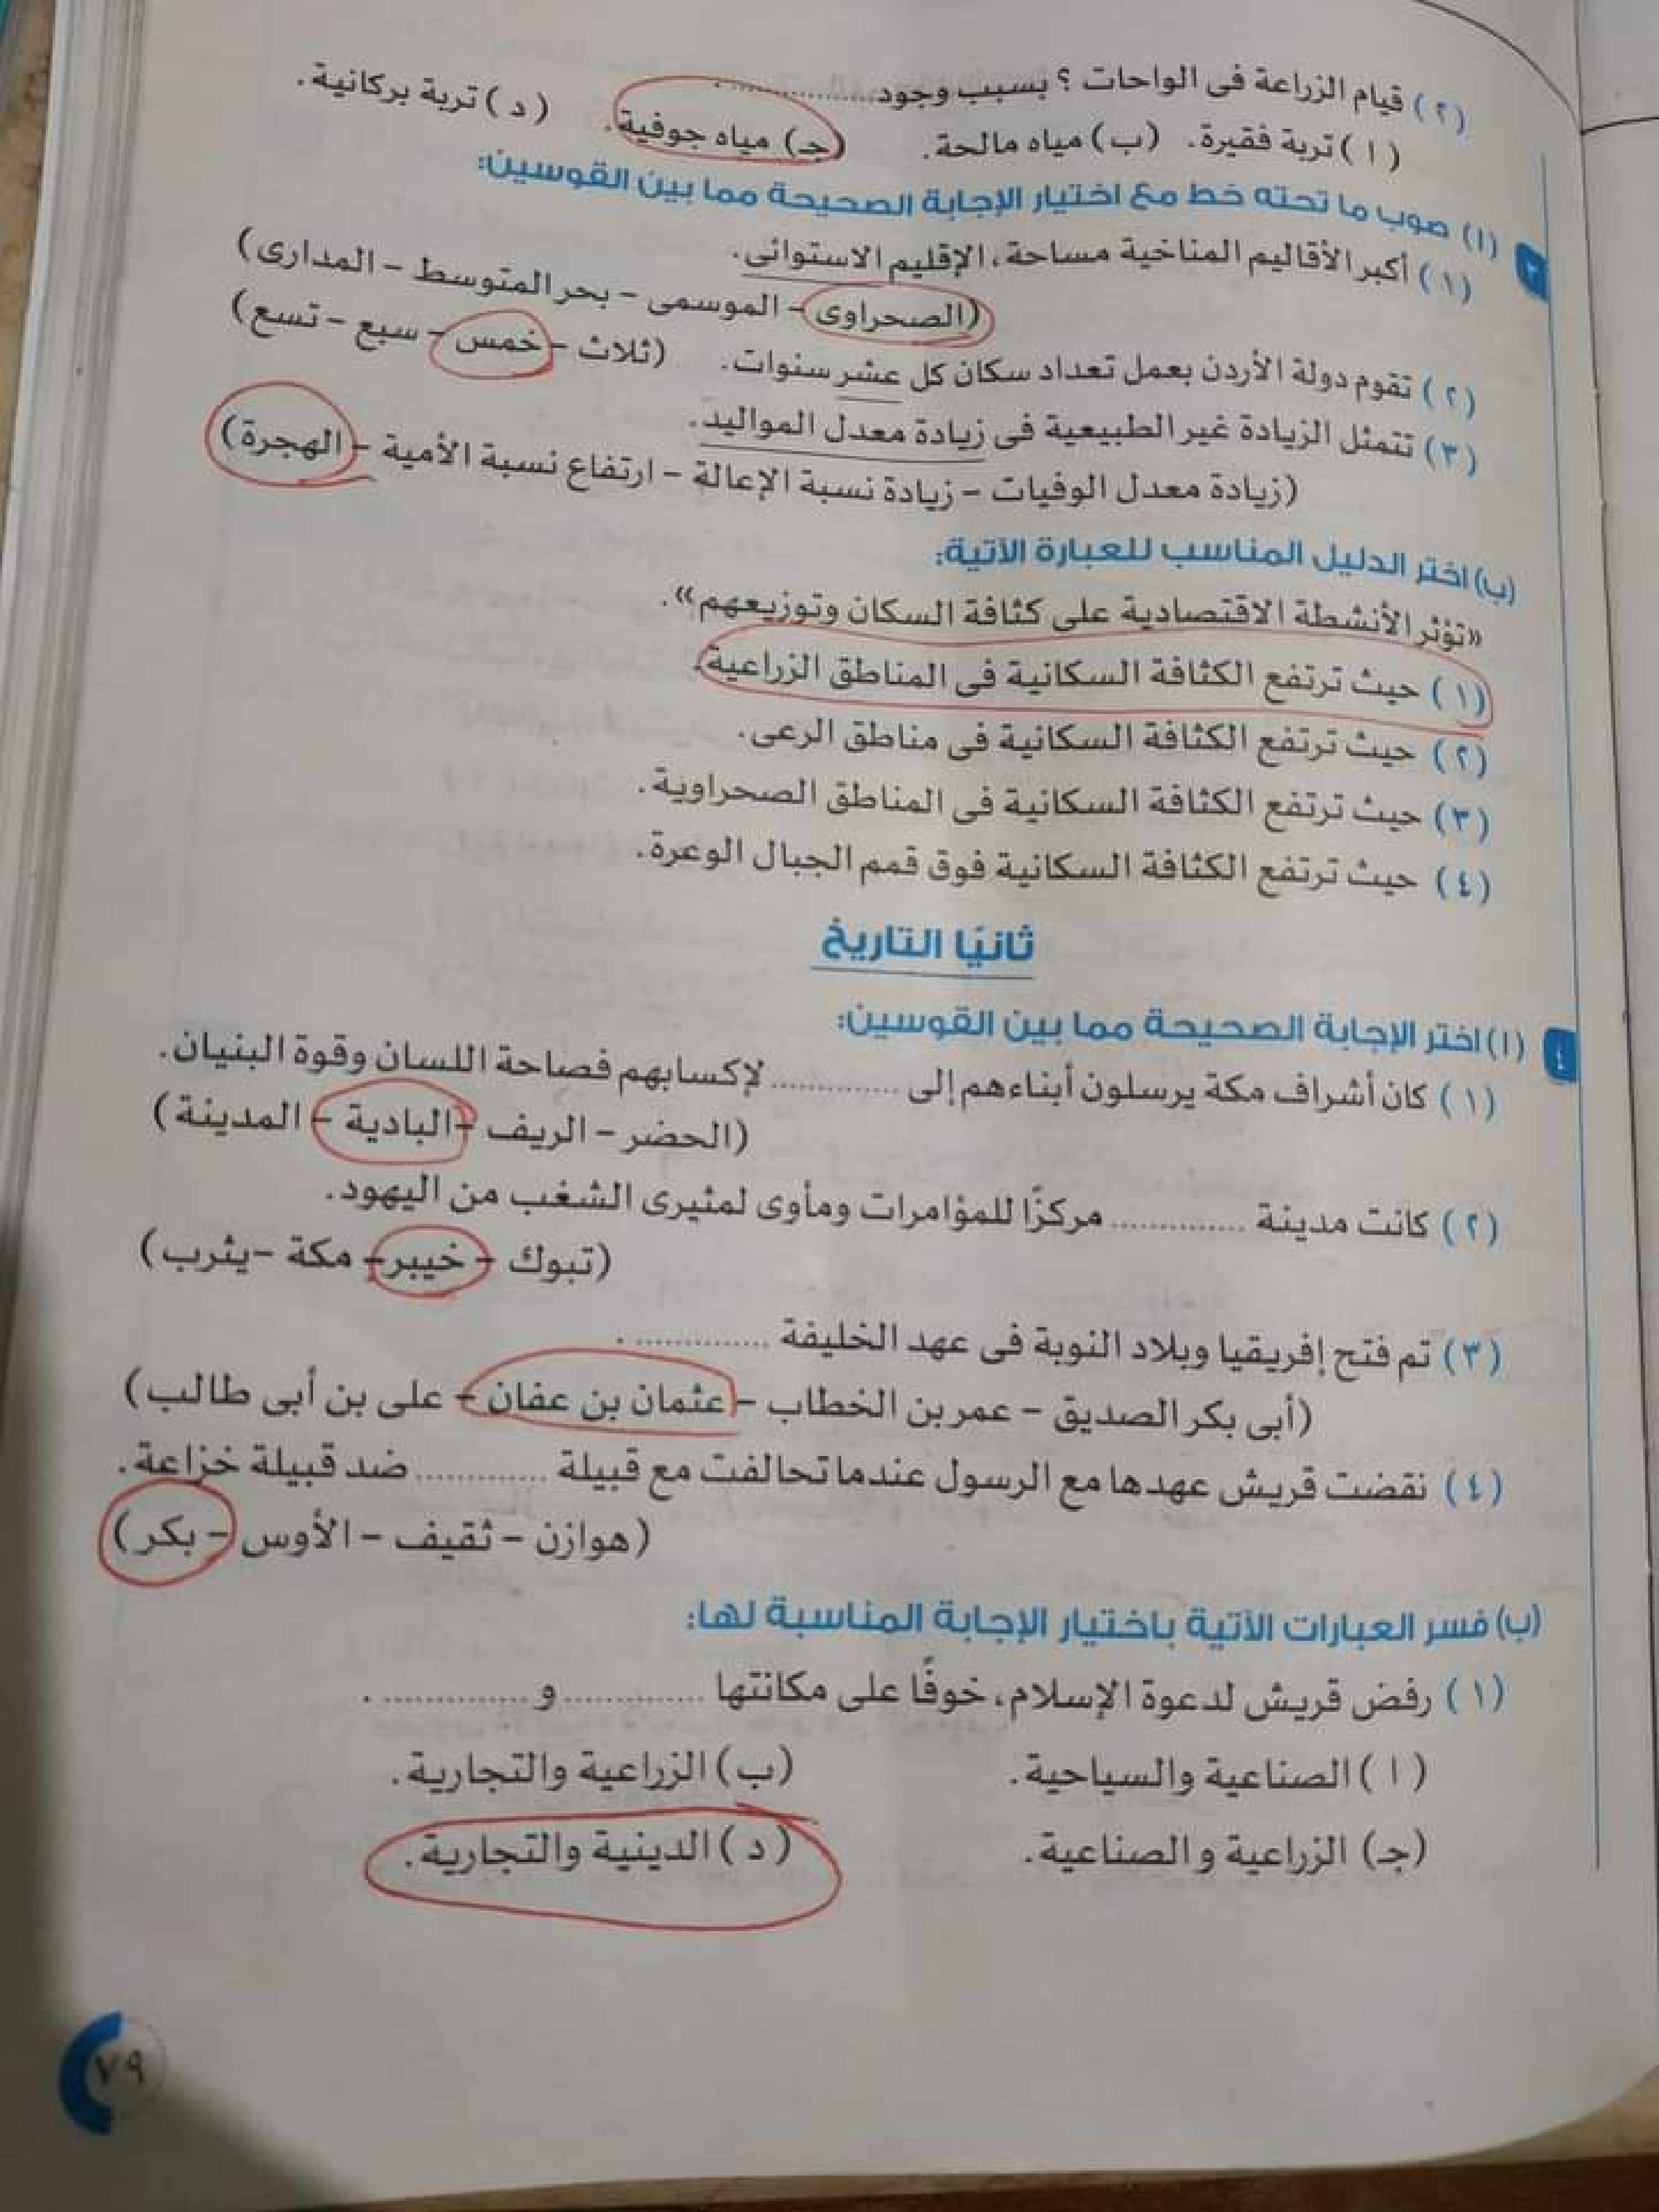 (٢) قيام الزراعة فى الواحات ؟ بسبب وجود .............. .
(ا) تربة فقيرة. (ب) مياه مالحة. (جـ) مياه جوفية. (د) تربة بركانية.
٣ (ا) صوب ما تحته خط مع اختيار الإجابة الصحيحة مما بين القوسين:
(١) أكبر الأقاليم المناخية مساحة، الإقليم الاستوائى.
(الصحراوى - الموسمى - بحر المتوسط - المدارى)
(٢) تقوم دولة الأردن بعمل تعداد سكان كل عشر سنوات. (ثلاث - خمس - سبع - تسع)
(٣) تتمثل الزيادة غير الطبيعية فى زيادة معدل المواليد.
(زيادة معدل الوفيات - زيادة نسبة الإعالة - ارتفاع نسبة الأمية - الهجرة)
(ب) اختر الدليل المناسب للعبارة الآتية:
«تؤثر الأنشطة الاقتصادية على كثافة السكان وتوزيعهم».
(١) حيث ترتفع الكثافة السكانية فى المناطق الزراعية.
(٢) حيث ترتفع الكثافة السكانية فى مناطق الرعى.
(٣) حيث ترتفع الكثافة السكانية فى المناطق الصحراوية.
(٤) حيث ترتفع الكثافة السكانية فوق قمم الجبال الوعرة.
ثانيًا التاريخ
٤ (ا) اختر الإجابة الصحيحة مما بين القوسين:
(١) كان أشراف مكة يرسلون أبناءهم إلى .............. لإكسابهم فصاحة اللسان وقوة البنيان.
(الحضر - الريف - البادية - المدينة)
(٢) كانت مدينة .............. مركزًا للمؤامرات ومأوى لمثيرى الشغب من اليهود.
(تبوك - خيبر - مكة - يثرب)
(٣) تم فتح إفريقيا وبلاد النوبة فى عهد الخليفة .............. .
(أبى بكر الصديق - عمر بن الخطاب - عثمان بن عفان - على بن أبى طالب)
(٤) نقضت قريش عهدها مع الرسول عندما تحالفت مع قبيلة .............. ضد قبيلة خزاعة.
(هوازن - ثقيف - الأوس - بكر)
(ب) فسر العبارات الآتية باختيار الإجابة المناسبة لها:
(١) رفض قريش لدعوة الإسلام، خوفًا على مكانتها .............. و .............. .
(ا) الصناعية والسياحية. (ب) الزراعية والتجارية.
(جـ) الزراعية و الصناعية. (د) الدينية والتجارية.
٧٩